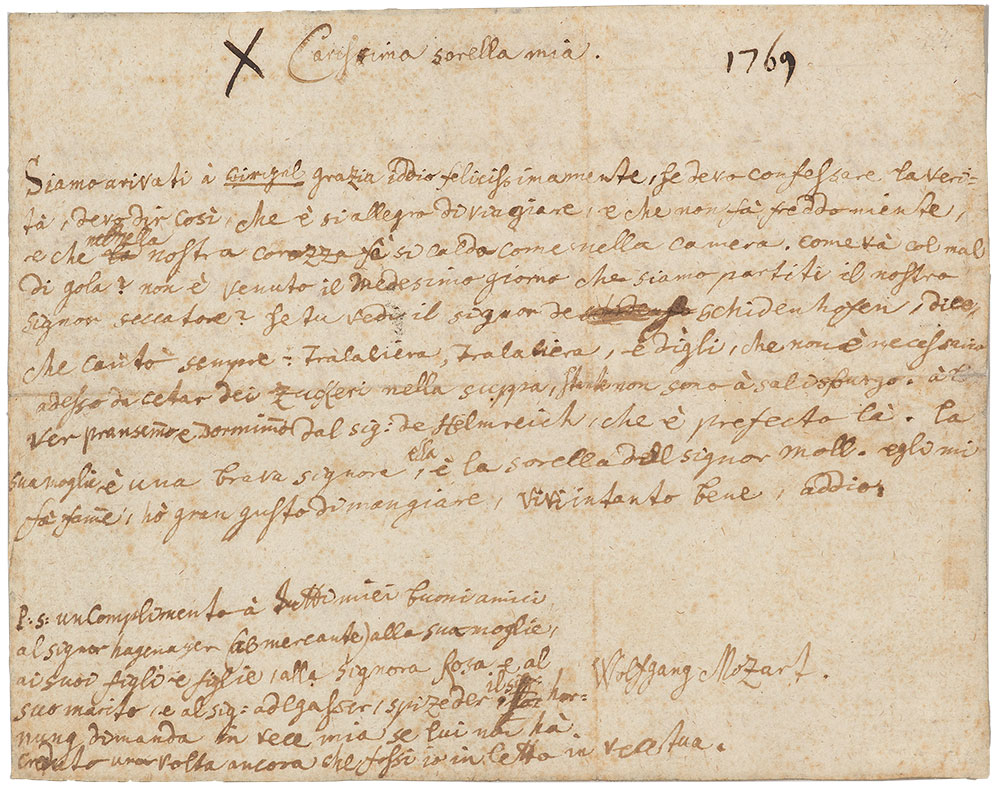 X Carissima sorella mia. 1769
Siamo arivati à wirgel grazia iddio felicissimamente, se devo confessare la veri=
tà, devo dir cosi, che è si allegro di viagiare, e che non fà freddo niente,
e che nella nostra corozza fà si caldo come nella camera. come và col mal
di gola? non è venuto il medesimo giorno che siamo partiti il nostro
signor seccatore? se tu vedi il signor de schidenhofen, dice,
che canto sempre: tralaliera, tralaliera, è digli, che non è necessario
adesso da cetar dei zuckeri nella suppa, non sono à salisburgo. à l
ver pransimo e dormimo dal sig: de Helmreich, che è prefecto là. la
sua moglie, è una brava signora ella, è la sorella del signor moll. egli mi
fà fame, hò gran gusto di mangiare, vivi intanto bene, addio.
P:s: un Complimento à tutti miei buoni amici
al signor hagenayer (il mercante) alla sua moglie,
ai suoi figli e figlie, alla signora Rosa e al
suo marito, e al sig: adlgasser, spizeder, il sig: hor=
nung dimanda in vece mia se lui non hà
creduto una volta ancora che fossi io in letto in vece tua.
Wolfgang Mozart.